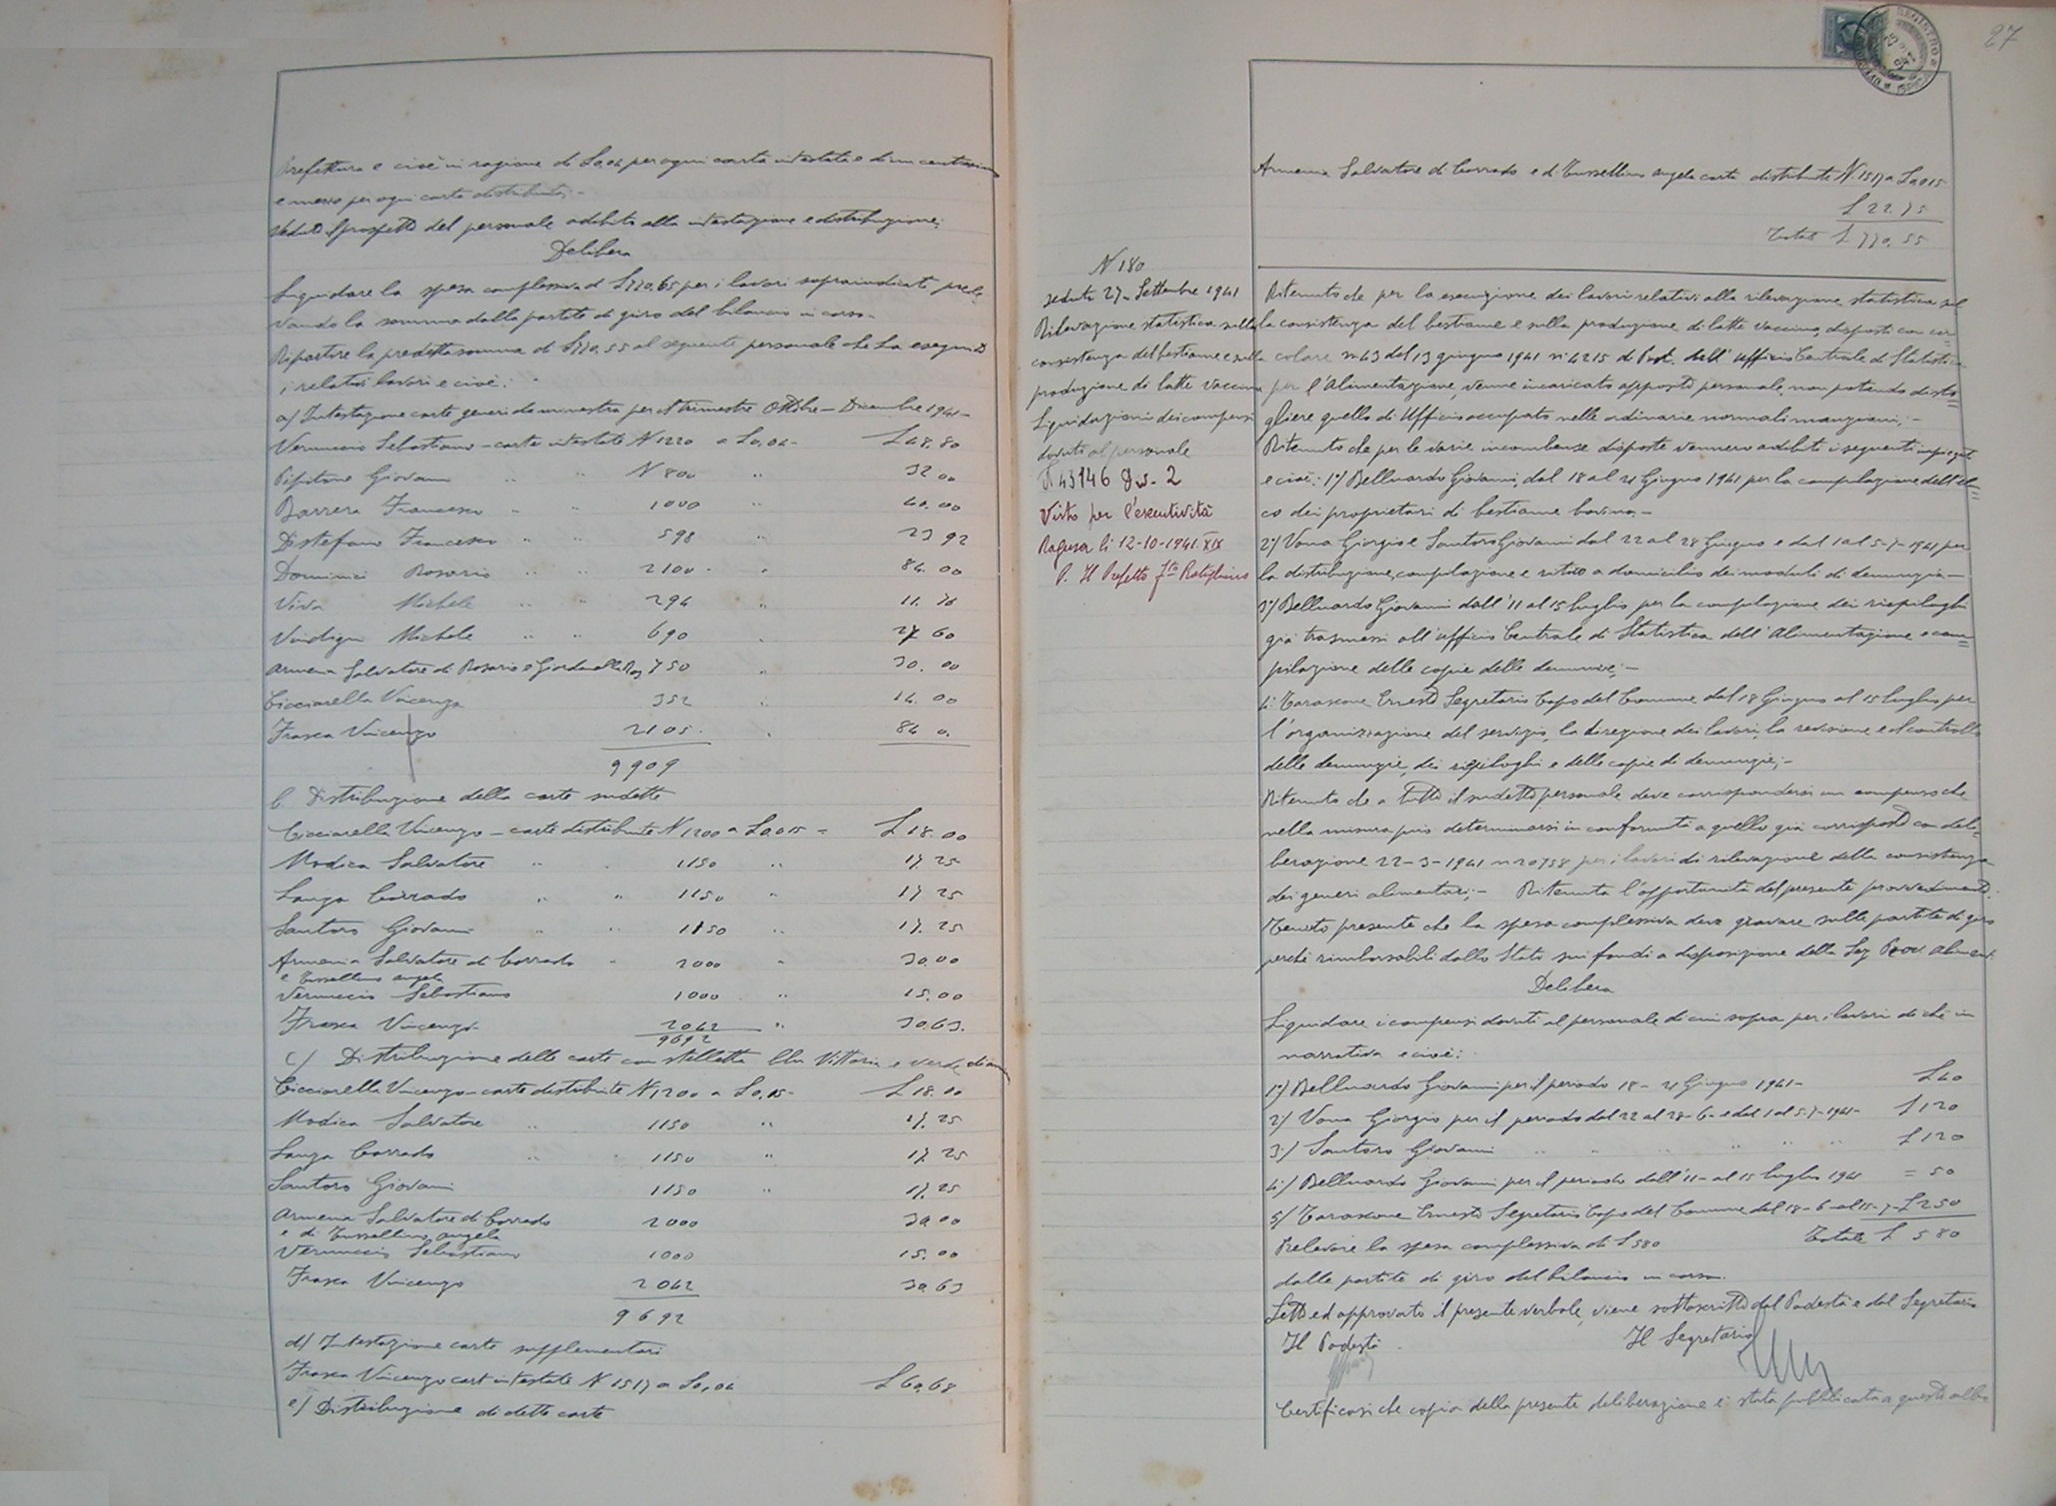 Prefettura e cioè in ragione di L 0,04 per ogni carta intestata e di un centesimo
e mezzo per ogni carta distribuita;-
Veduto il prospetto del personale adibito alla intestazione e distribuzione;
Delibera
Liquidare la spesa complessiva di L 770,65 per i lavori sopraindicati prele
vando la somma dalla partite di giro del bilancio in corso.-
Ripartire la predetta somma di L 770,55 al seguente personale che ha eseguito
i relativi lavori e cioè:
a) Intestazione carte generi da minestra per il trimestre Ottobre - Dicembre 1941-
Vernuccio Sebastiano - carte intestate N 1220 a L 0,04- L 48,80
Pipitone Giovanni " " N 800 " 32 00
Barrera Francesco " " 1000 " 40.00
Distefano Francesco " " 598 " 23 92
Dominici Rosario " " 2100 " 84.00
Viva Michele " " 294 " 11.76
Vindigni Michele " " 690 " 27 60
Armenia Salvatore di Rosario e Giordanella Ros 750 " 30.00
Cicciarella Vincenzo 352 " 14.00
Frasca Vincenzo 2105. " 84 0.
9909
b. Distribuzione delle carte sudette
Cicciarella Vincenzo - carte distribuite N 1200 a L 0,015 - L 18.00
Modica Salvatore " " 1150 " 17 25
Lanza Corrado " " 1150 " 17 25
Santoro Giovanni " " 1150 " 17.25
Armenia Salvatore di Corrado " 2000 " 30.00
e Tussellino Angela
Vernuccio Sebastiano 1000 " 15.00
Frasca Vincenzo 2042 " 30.63.
9692
c) Distribuzione delle carte con stelletta blu Vittoria e verde
Cicciarella Vincenzo - carte distribuite N 1200 a L 0,15- L 18.00
Modica Salvatore " 1150 " 17.25
Lanza Corrado " 1150 " 17.25
Santoro Giovanni 1150 " 17.25
Armenia Salvatore di Corrado 2000 30.00
e di Tussellino Angela
Vernuccio Sebastiano 1000 15.00
Frasca Vincenzo 2042 30.63
9692
d) Intestazione carte supplementari
Frasca Vincenzo cart intestate N 1517 a L 0,04 L 60,68
e) Distribuzione di dette carte
27
Armenia Salvatore di Corrado e di Tussellino Angela carte distribuite N. 1517 a L 0,015
L 22.75
Totale L 770.55
N 180
seduta 27- Settembre 1941
Rilevazione statistica sulla
consistenza del bestiame e sulla
produzione di latte vaccino
Liquidazioni dei compensi
dovuti al personale
N 43146 Div. 2
Visto per l'esecutività
Ragusa li 12-10-1941. XIX
P. Il Prefetto
Ritenuto che per la esecuzione dei lavori relativi alla rilevazione statistica sul
la consistenza del bestiame e sulla produzione di latte vaccino, disposti con cir
colare n 43 del 13 giugno 1941 n° 4215 di Prot. dell'Ufficio Centrale di Statistica
per l'Alimentazione, venne incaricato apposito personale, non potendo disto=
gliere quello di Ufficio occupato nelle ordinarie normali mansioni;-
Ritenuto che per le varie incombenze disposte vennero adibiti i seguenti impiegati
e cioè: 1°) Belluardo Giovanni, dal 18 al 21 Giugno 1941 per la compilazione dell'elen=
co dei proprietari di bestiame bovino.-
2°) Vona Giorgio e Santoro Giovanni dal 22 al 28 Giugno e dal 1 al 5-7-1941 per
la distribuzione, compilazione e ritiro a domicilio dei moduli di denunzia-
3°) Belluardo Giovanni dall'11 al 15 luglio per la compilazione dei riepiloghi
già trasmessi all'ufficio Centrale di Statistica dell'Alimentazione e com=
pilazione delle copie delle denunzie;-
4: Tarascone Ernesto Segretario Capo del Comune dal 18 Giugno al 15 luglio per
l'organizzazione del servizio, la direzione dei lavori, la revisione e il controllo
delle denunzie, dei riepiloghi e delle copie di denunzie;-
Ritenuto che a tutto il sudetto personale deve corrispondersi un compenso che
nella misura può determinarsi in conformità a quello già corrisposto con deli=
berazione 22-3-1941 n 20758 per i lavori di rilevazione della consistenza
dei generi alimentari;- Ritenuta l'opportunità del presente provvedimento.
Tenuto presente che la spesa complessiva deve gravare sulle partite di giro
perchè rimborsabili dallo Stato sui fondi a disposizione della Sez Prov. Aliment.
Delibera
Liquidare i compensi dovuti al personale di cui sopra per i lavori di chè in
narrativa e cioè:
1°) Belluardo Giovanni per il periodo 18- 21 Giugno 1941- L 40
2) Vona Giorgio per il periodo dal 22 al 28-6- e dal 1 al 5-7-1941- L 120
3°) Santoro Giovanni " " " " L 120
4°) Belluardo Giovanni per il periodo dall'11- al 15 luglio 1941 = 50
5) Tarascone Ernesto Segretario Capo del Comune dal 18-6- al 15-7- L 250
Prelevare la spesa complessiva di L 580 Totale L 580
dalle partite di giro del bilancio in corso.
Letto ed approvato il presente verbale, viene sottoscritto dal Podestà e dal Segretario
Il Podestà Il Segretario
Certificasi che copia della presente deliberazione è stata pubblicata a questo albo